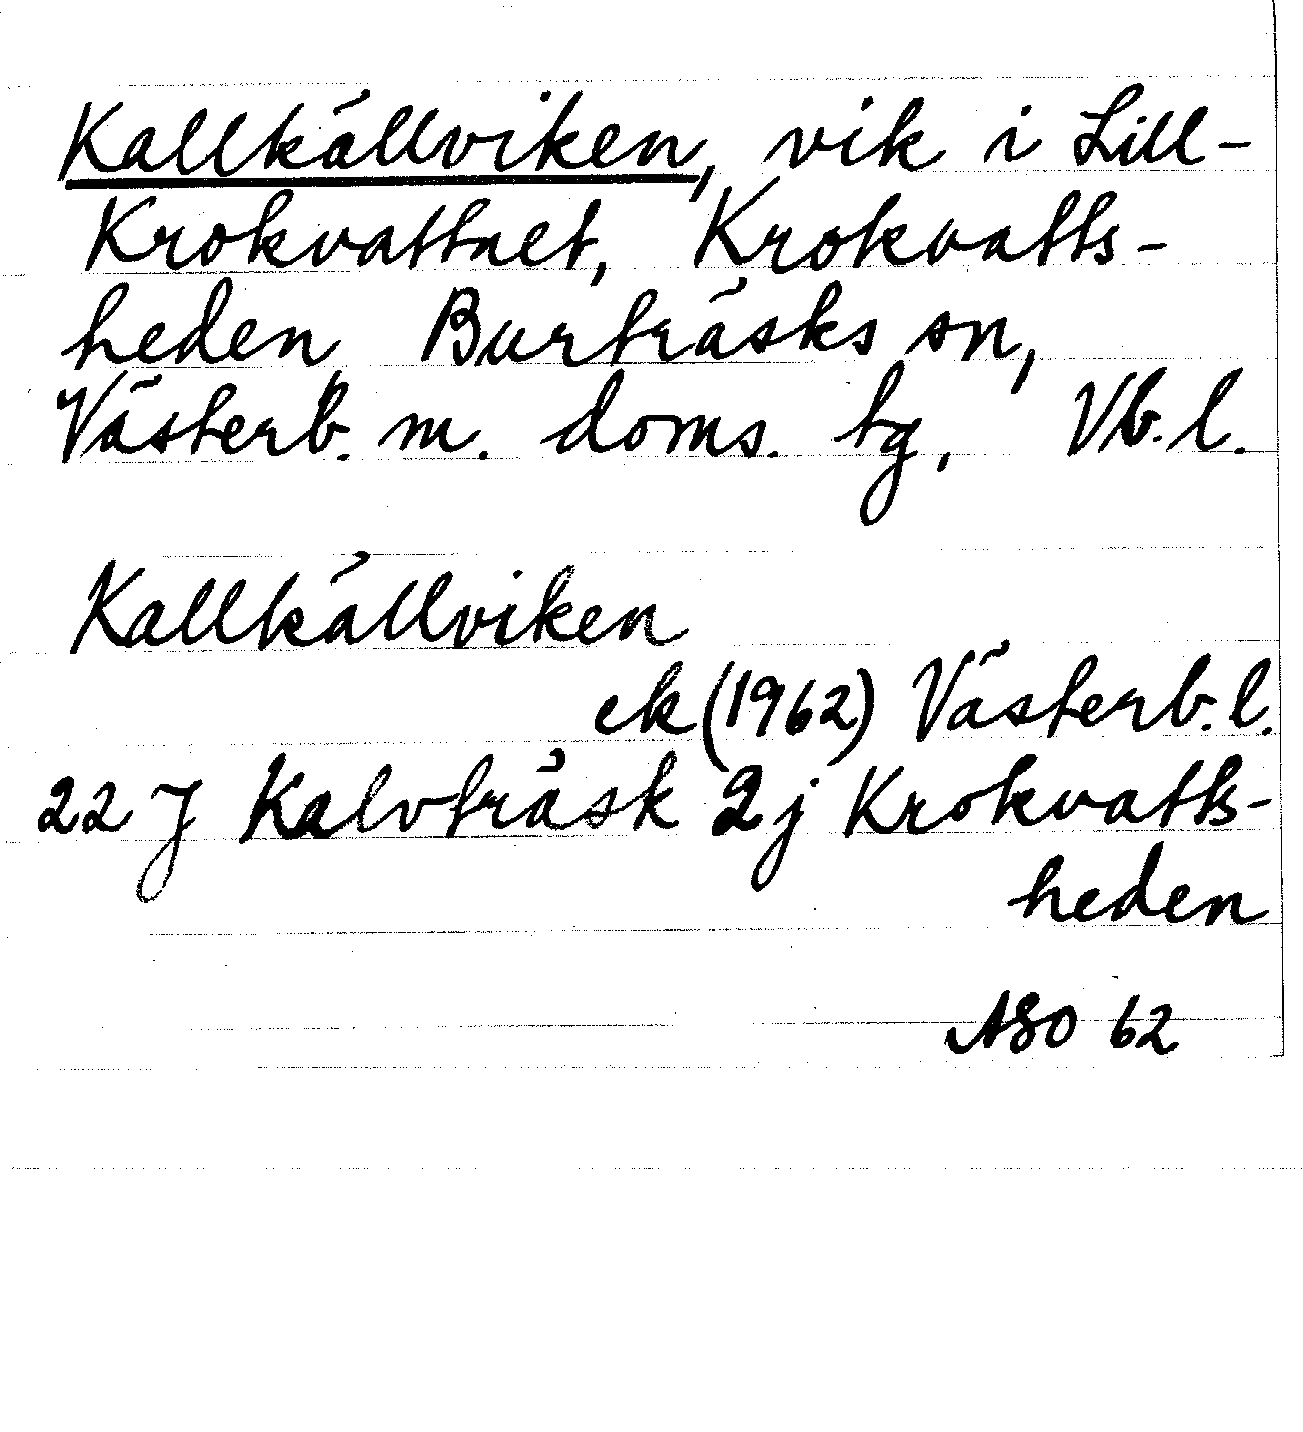 Kallkällviken, vik i Lill-
Krokvattnet, Krokvatts-
heden Burträsks sn,
Västerb. m. doms. tg, Vb. l.
Kallkällviken
ek (1962) Västerb. l.
22 J Kalvträsk 2j Krokvatts-
heden
ASO 62